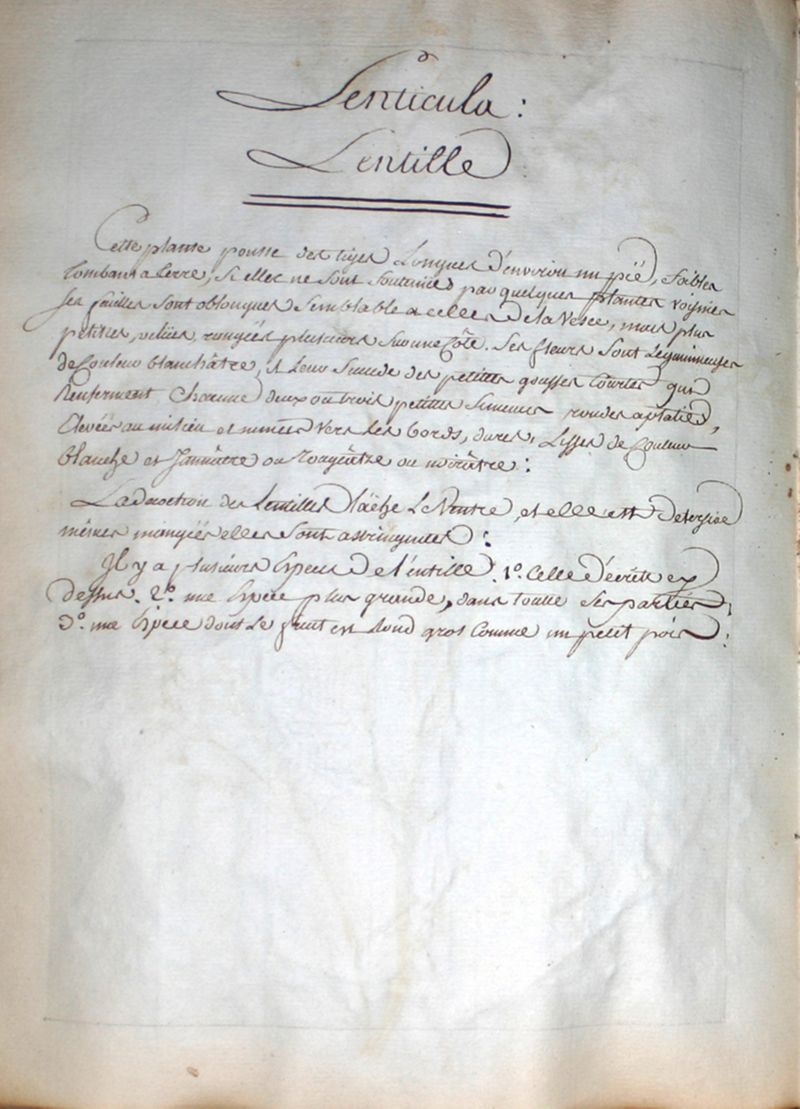 Lenticula :
Lentille
Cette plante pousse des tiges Longues d'environ un pié, faibles
tombant a terre, si elles ne sont soutenues par quelques plantes voysines
ses fuilles sont oblongues semblable a celles de la Vesce, mais plus
petites, velües, rangées plusieurs sur une Côte. Ses fleurs sont Legumineuses
de Couleur blanchâtre, il leur succede des petittes gousses courtes qui
Renferment Chacune deux ou trois petittes semences rondes aplaties,
élevées au milieu et minces vers Les bords, dures, Lisses, de Couleur
blanche et Jaunâtre ou rougeâtre ou noirâtre :
La decoction des Lentilles lâche Le Ventre, et elle est detersive
mêmes mangées elles sont astringentes :
Il y a plusieurs Especes de l'entille. 1.º Celle décrite cy
dessus. 2.º une Espece plus grande, dans toutte ses parties,
3.º une Espece dont Le fruit est Rond gros comme un petit pois :